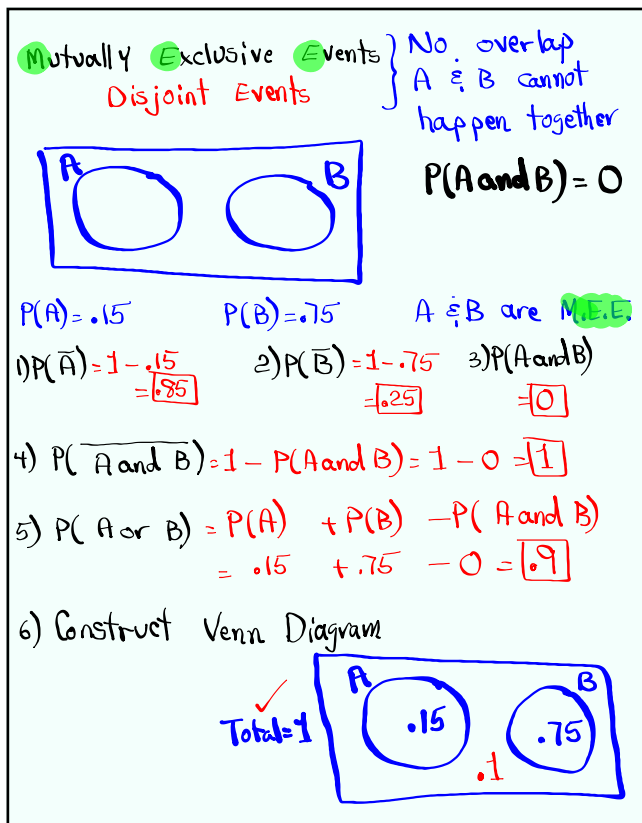 Mutually Exclusive Events } No overlap
Disjoint Events A & B cannot
happen together
A B P(A and B) = 0
P(A) = .15 P(B) = .75 A & B are M.E.E.
1) P(A̅) = 1 - .15 2) P(B̅) = 1 - .75 3) P(A and B)
= .85 = .25 = 0
4) P(A̅ ̅a̅n̅d̅ ̅B̅) = 1 - P(A and B) = 1 - 0 = 1
5) P(A or B) = P(A) + P(B) - P(A and B)
= .15 + .75 - 0 = .9
6) Construct Venn Diagram
A B
✓
Total = 1 .15 .75
.1